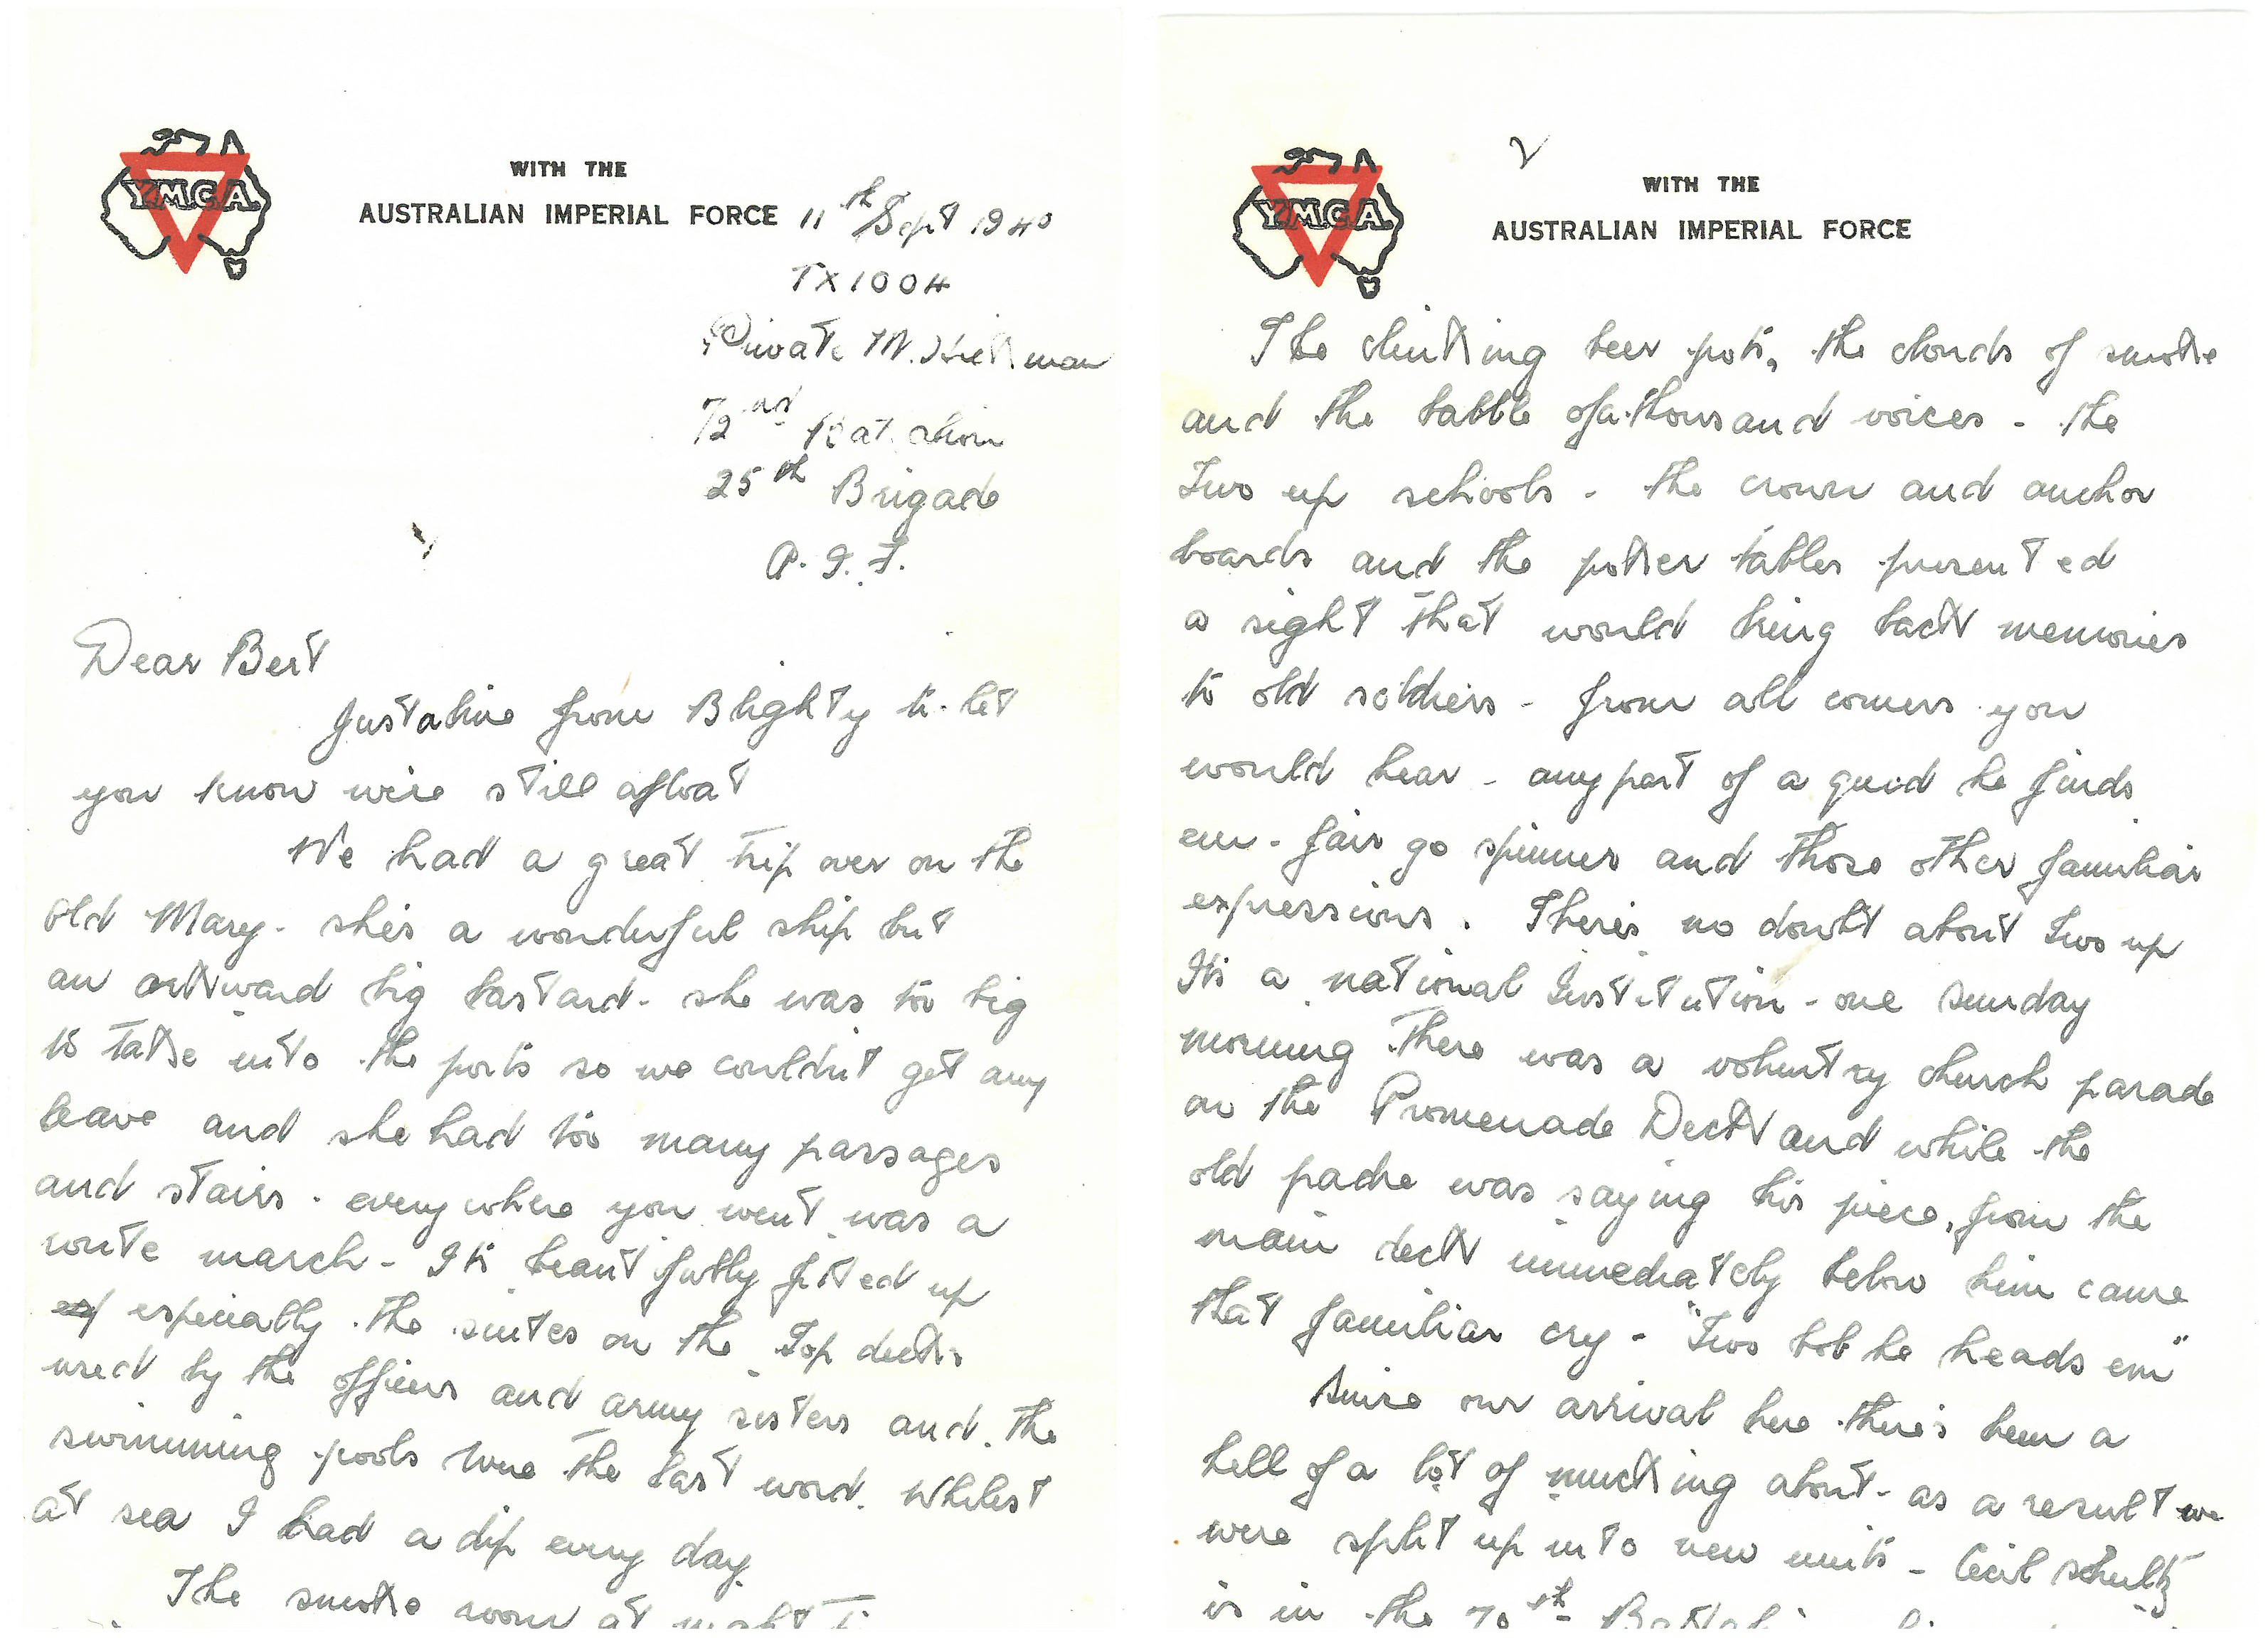 Y.M.C.A.
WITH THE
AUSTRALIAN IMPERIAL FORCE 11th Sept 1940
TX1004
Private M. Hickman
72nd Battalion
25th Brigade
A.I.F.
Dear Bert
Just a line from Blighty to let
you know we're still afloat
We had a great trip over on the
old Mary - she's a wonderful ship but
an awkward big bastard - she was too big
to take into the ports so we couldn't get any
leave and she had too many passages
and stairs - everywhere you went was a
route march - It's beautifully fitted up
especially the suites on the Top decks
used by the officers and army sisters and the
swimming pools were the last word. Whilest
at sea I had a dip every day.
The smoke room at night
2
Y.M.C.A.
WITH THE
AUSTRALIAN IMPERIAL FORCE
The clinking beer pots, the clouds of smoke
and the babble of a thousand voices - the
Two up schools - the crown and anchor
boards and the poker tables presented
a sight that would bring back memories
to old soldiers - from all corners you
would hear - any part of a quid he finds
em - fair go spinner and those other familiar
expressions. There's no doubt about Two up
It's a national Institution - one sunday
morning there was a voluntry church parade
on the Promenade Deck and while the
old padre was saying his piece, from the
main deck immediately below him came
that familiar cry - "Two bob he heads em"
Since our arrival here there's been a
hell of a lot of mucking about - as a result we
were split up into new units - Cecil Schultz
is in the 70th Battalion